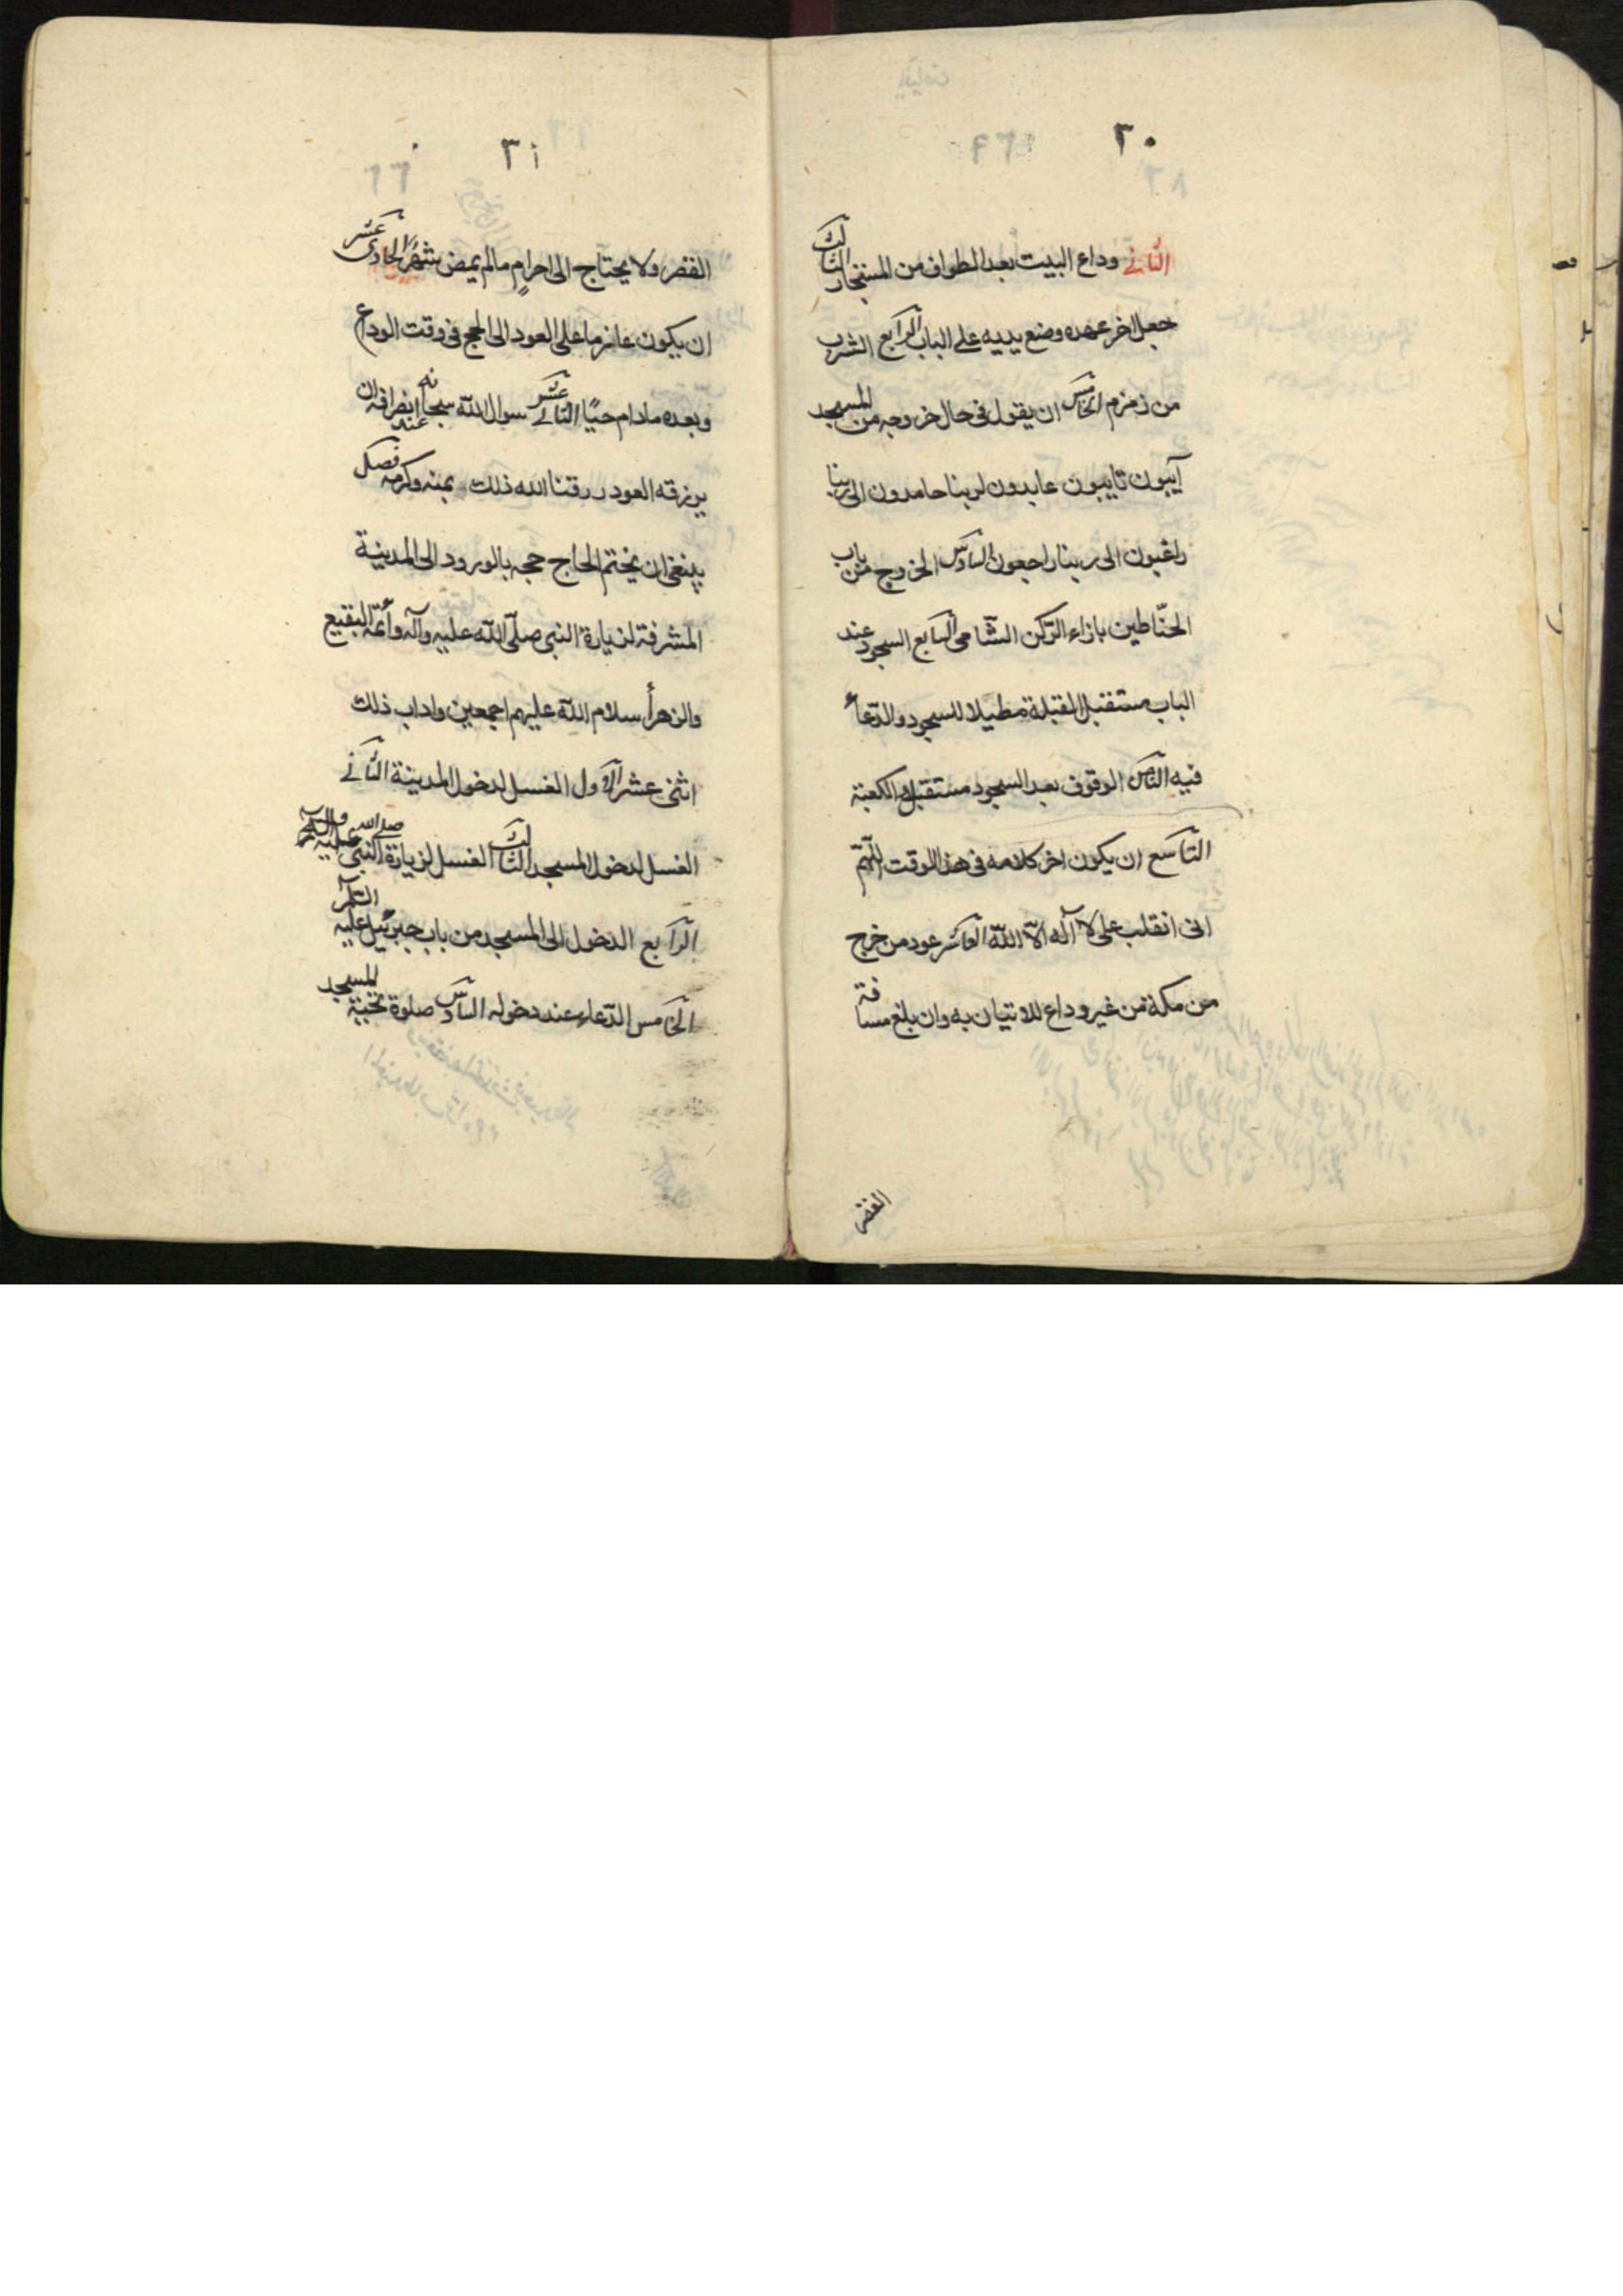 ٣٠
الثانی وداع البیت بعد الطواف من المستجار الثالث
جعل اخر عهده وضع یدیه علی الباب الرابع الشرب
من زمزم الخامس ان یقول فی حال خروجه من المسجد
آیبون تایبون عابدون لربنا حامدون الی ربنا
راغبون الی ربنا راجعون السادس الخروج من باب
الحنّاطین بازاء الرّکن الشّامی السابع السجود عند
الباب مستقبل القبلة مطیلا للسجود والدّعاء
فیه الثامن الوقوف بعد السجود مستقبل الکعبة
التاسع ان یکون اخر کلامه فی هذا الوقت اللّهمّ
انی انقلب علی لا آله الّا اللّه العاشر عود من خرج
من مکة من غیر وداع للاتیان به وان بلغ مسافة
القفر
٣١
القفر ولا یحتاج الی احرام مالم یمض شهر الحادی عشر
ان یکون عازما علی العود الی الحج فی وقت الوداع
وبعده مادام حیًا الثانی عشر سوال اللّه سبحانه عند انصرافه ان
یرزقه العود رزقنا الله ذلک بمنه وکرمه فصل
ینبغی ان یختم الحاج حجه بالورود الی المدینة
المشرفة لزیارة النبی صلّی اللّه علیه وآله وأئمّة البقیع
والزهرأ سلام اللّه علیهم اجمعین واداب ذلک
اثنی عشر الاول الغسل لدخول المدینة الثانی
الغسل لدخول المسجد الثالث الغسل لزیارة النبی صلی الله علیه وآله
الرابع الدخول الی المسجد من باب جبرئیل علیه السلام
الخامس الدّعاء عند دخوله السادس صلوة تحیة المسجد